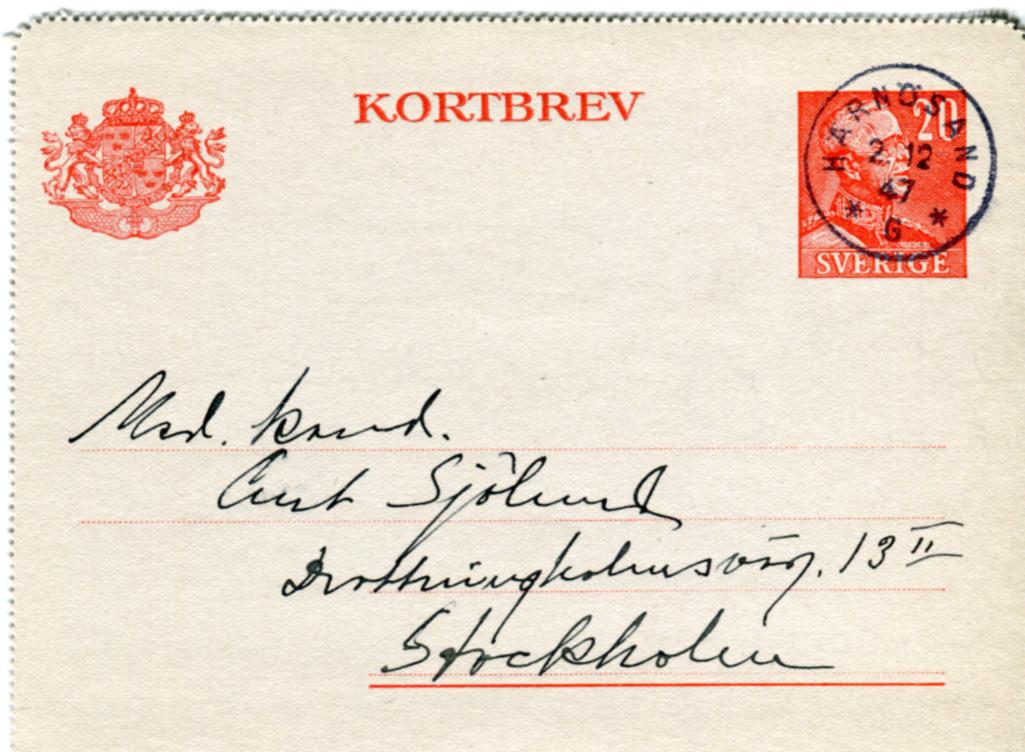 KORTBREV
20
HÄRNÖSAND
2. 12
47
* G *
SVERIGE
Med. kand.
Curt Sjölund
Drottningholmsväg. 13 II
Stockholm